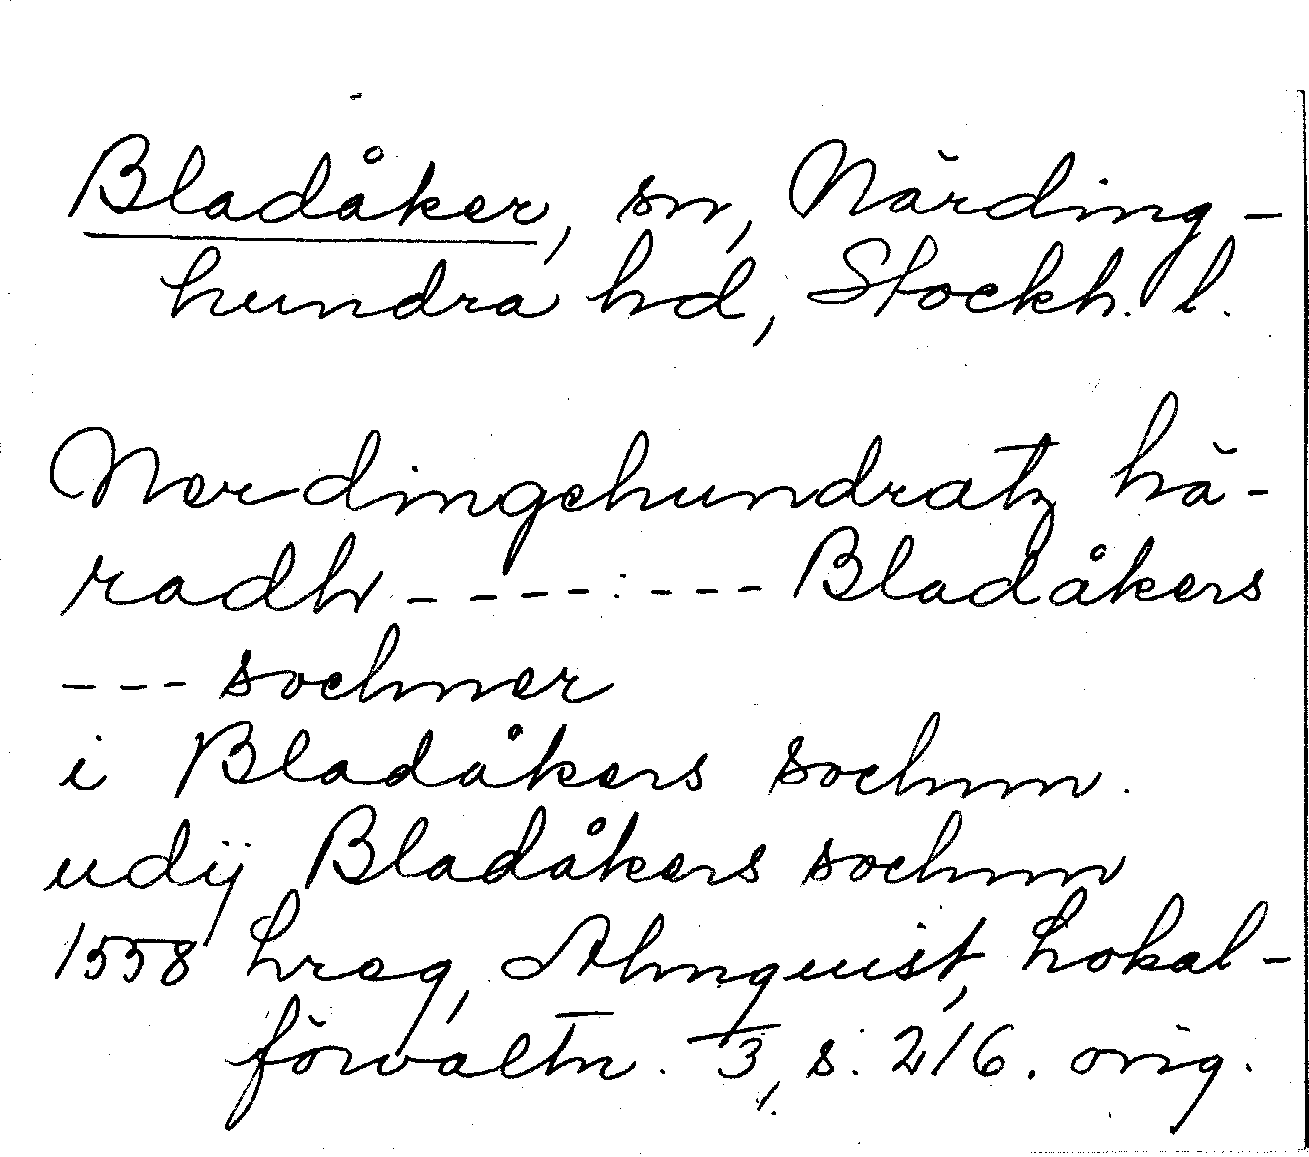 Bladåker, sn, Närding-
hundra hd, Stockh. l.
Nerdingehundratz hä-
radh - - - - - - - - Bladåkers
- - - sochner
i Bladåkers sochnn.
udij Bladåkers sochnn
1558 hreg, Almquist, Lokal-
förvaltn. 3, s. 216. orig.